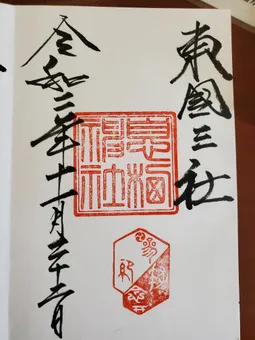 東國三社
息栖神社
令和二年十一月二十二日